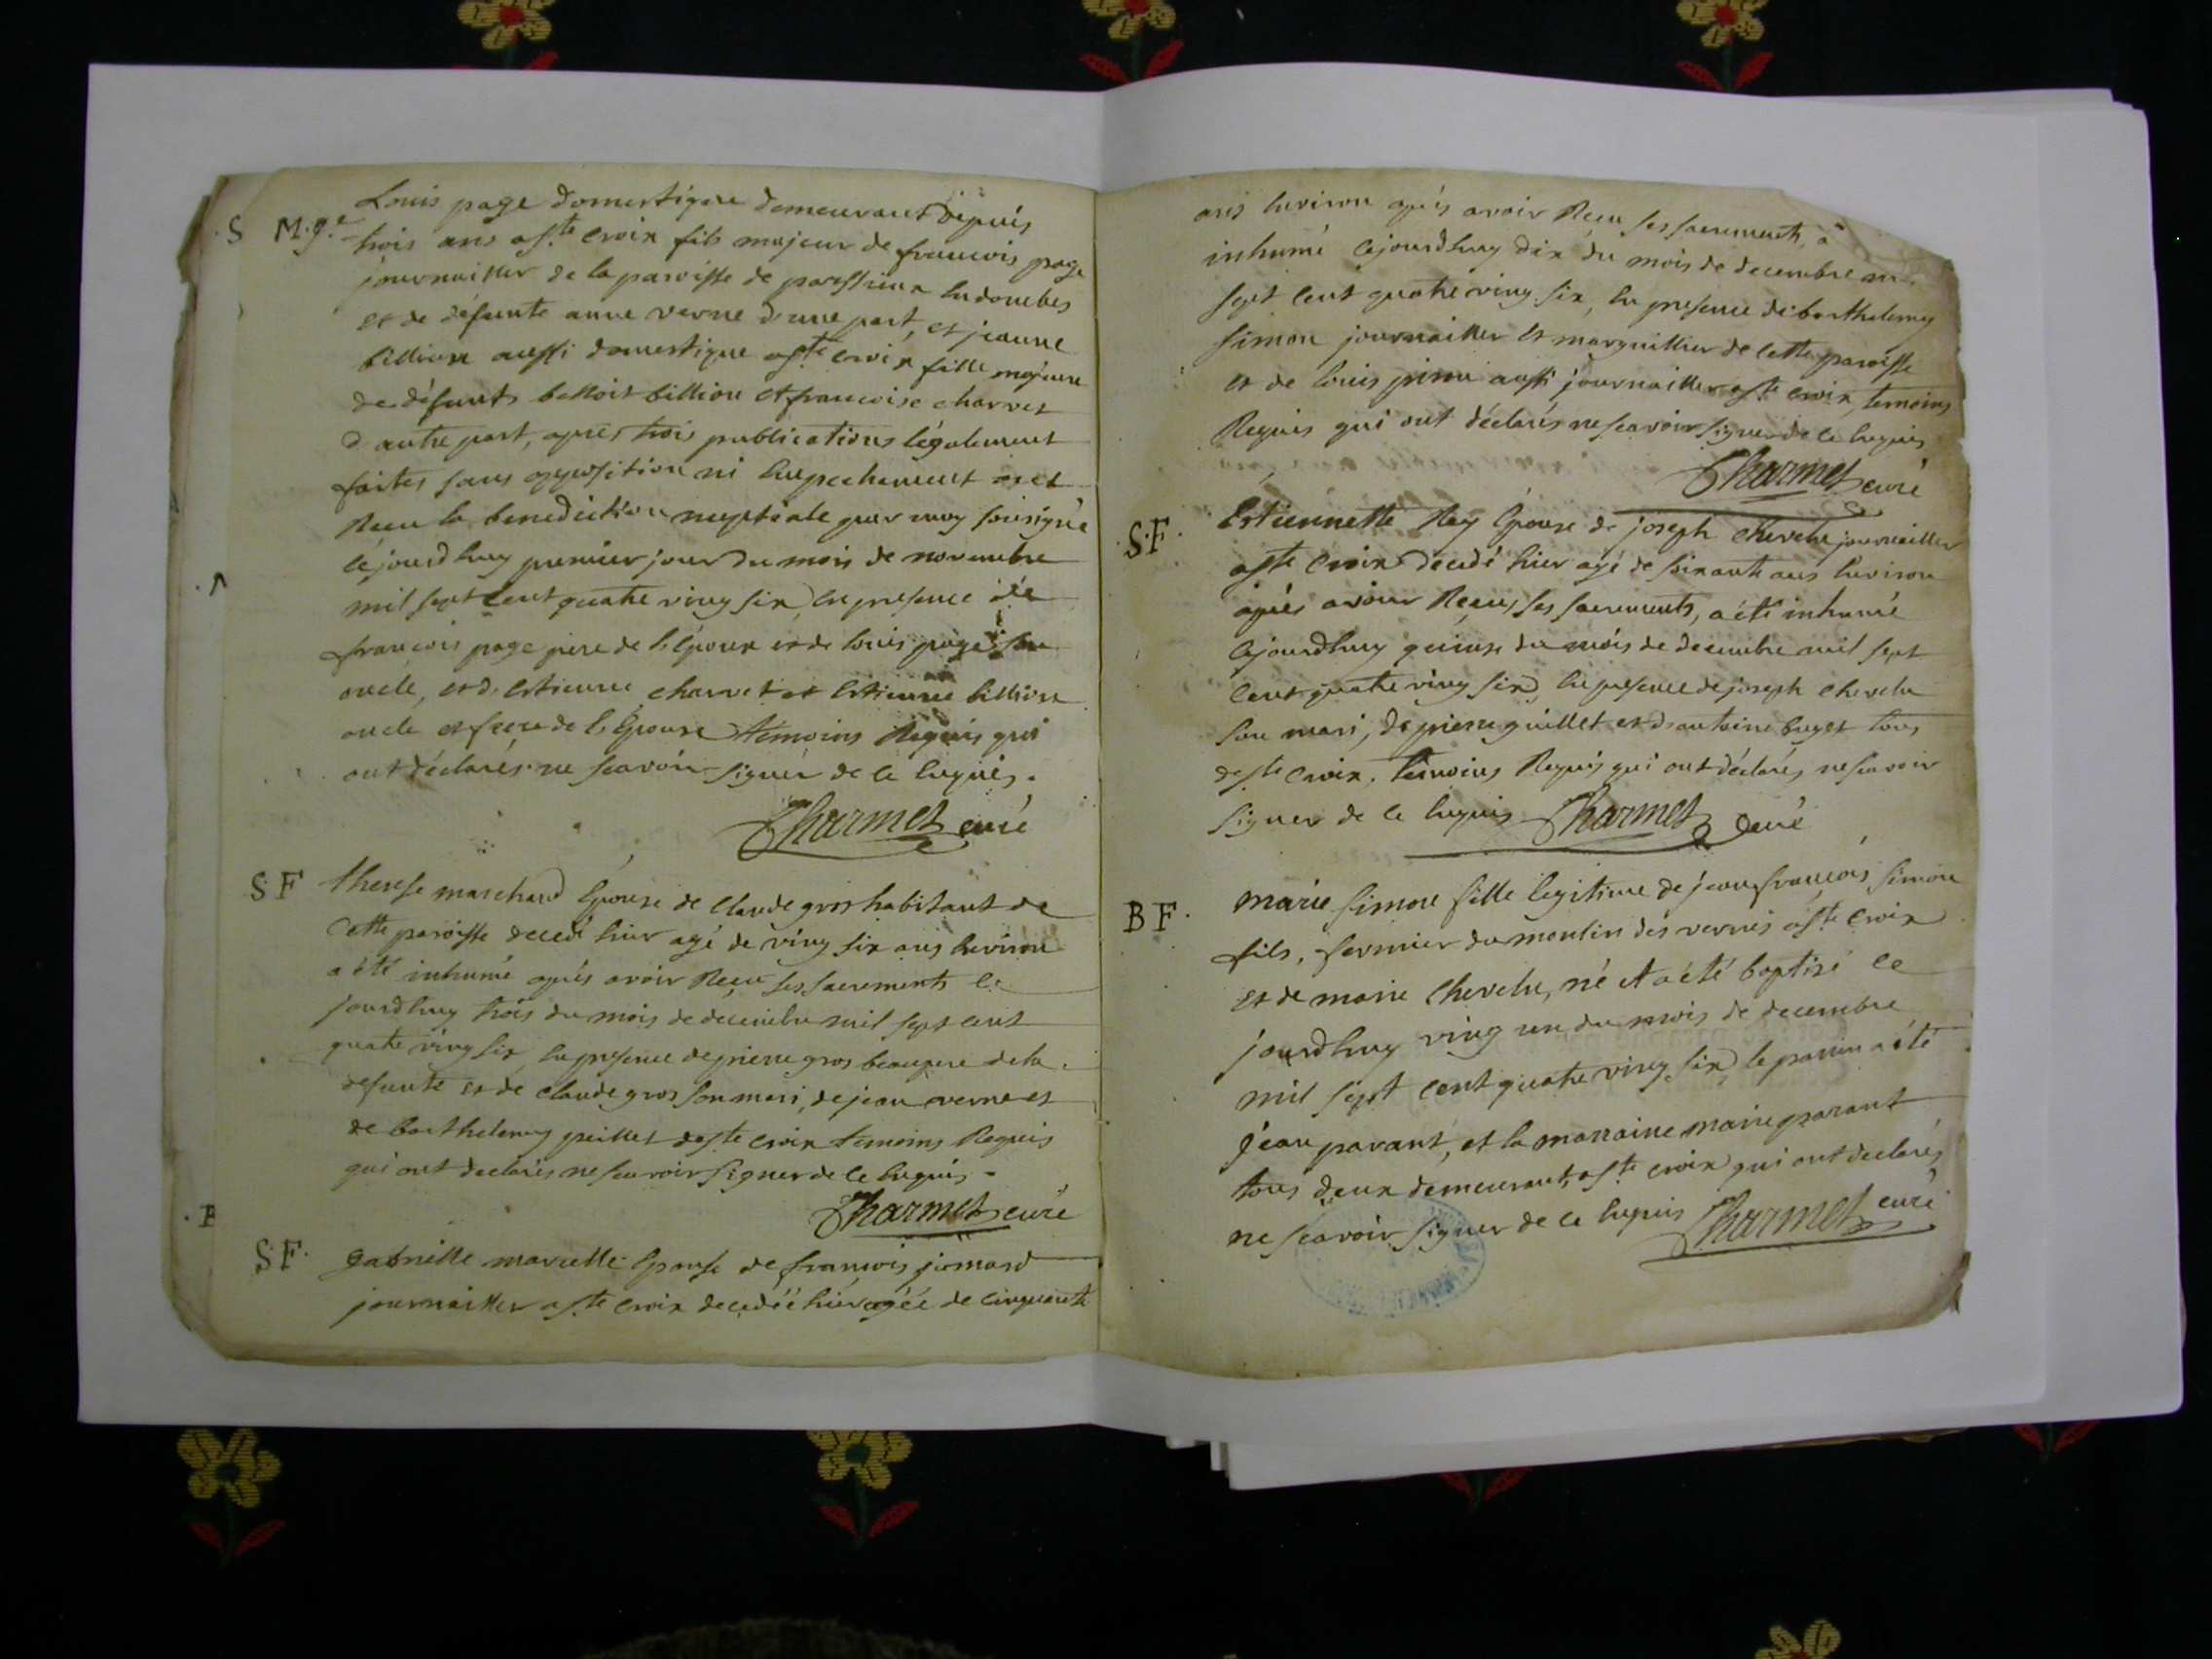 Louis page domestique demeurant depuis
M.ge trois ans aste croix fils majeur de francois page
journaillier de la paroisse de parssieux en dombes
et de défunte anne verne d'une part, et jeanne
billion aussi domestique aste croix fille majeure
de défunts benoit billion et francoise charvet
d'autre part, apres trois publications légalement
faites sans opposition ni empechement ont
Recu la benediction nuptiale par moy sousigné
cejourdhuy premier jour du mois de novembre
mil sept cent quatre ving six en presence de
francois page pere de l'époux et de louis page son
oncle, et d'estienne charvet et estienne billion
oncle et frere de l'Epouse témoins Requis qui
ont déclarés ne scavoir signer de ce enquis.
Charmet curé
S F therese marchand Epouse de claude gros habitant de
cette paroisse decedé hier agé de ving six ans environ
a été inhumé après avoir Recu ses sacrements ce
jourdhuy trois du mois de decembre mil sept cent
quatre ving six en presence de pierre gros beaupere de la
defunte et de claude gros son mari, de jean verne et
de barthelemy peillet de ste croix témoins Requis
qui ont declarés ne scavoir signer de ce enquis.
Charmet curé
S F. gabrielle marcelle Epouse de francois jomard
journaillier aste croix decedéé hier agéé de cinquante
ans environ après avoir Recu ses sacrements, a
inhumé cejourdhuy dix du mois de decembre mil
sept cent quatre ving six, en presence de barthelemy
simon journaillier et marguillier de cette paroisse
et de louis prim aussi journaillier aste croix, temoins
Requis qui ont déclarés ne scavoir signer de ce enquis
Charmet curé
S.F. Estiennette Rey Epouse de joseph cherclu journaillier
aste croix decedé hier agé de soixante ans environ
après avoir Recus ses sacrements, a été inhumé
cejourdhuy quinze du mois de decembre mil sept
cent quatre ving six, en presence de joseph cherclu
son mari, de pierre guillet et d'antoine buget tous
de ste croix, temoins Requis qui ont déclarés ne scavoir
signer de ce enquis Charmet curé
B F. marie simon fille legitime de jean francois simon
fils, fermier du moulin des vernes aste croix
et de marie cherclu, né et a été baptisé ce
jourdhuy ving un du mois de decembre
mil sept cent quatre ving six le parrin a été
jean parant, et la marraine marie parant
tous deux demeurants aste croix qui ont declarés
ne scavoir signer de ce enquis Charmet curé